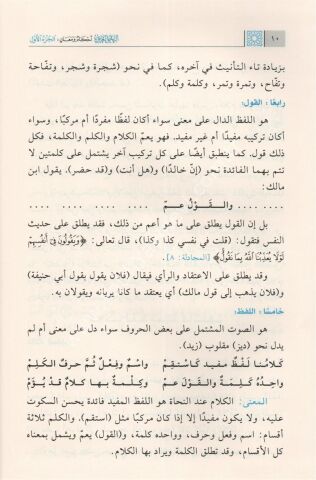 ١٠
النحو العربي أحكام ومعان - الجزء الأول
بزيادة تاء التأنيث في آخره، كما في نحو (شجرة وشجر، وتفاحة
وتفّاح، وتمرة وتمر، وكلمة وكلم).
رابعًا: القول:
هو اللفظ الدال على معنى سواء أكان لفظًا مفردًا أم مركبًا، وسواء
أكان تركيبه مفيدًا أم غير مفيد. فهو يعمّ الكلام والكلم والكلمة، فكل
ذلك قول. كما ينطبق أيضًا على كل تركيب آخر يشتمل على كلمتين لا
تتم بهما الفائدة نحو (إنّ خالدًا) و(هل أنت) و(قد حضر). يقول ابن
مالك:
.... .... .... والقَوْلُ عمّ .... .... .... ....
بل إن القول يطلق على ما هو أعم من ذلك، فقد يطلق على حديث
النفس فتقول: (قلت في نفسي كذا وكذا)، قال تعالى: ﴿وَيَقُولُونَ فِي أَنفُسِهِمْ
لَوْلَا يُعَذِّبُنَا اللَّهُ بِمَا نَقُولُ﴾ [المجادلة: ٨].
وقد يطلق على الاعتقاد والرأي فيقال (فلان يقول بقول أبي حنيفة)
و(فلان يذهب إلى قول مالك) أي يعتقد ما كانا يريانه ويقولان به.
خامسًا: اللفظ:
هو الصوت المشتمل على بعض الحروف سواء دل على معنى أم لم
يدل نحو (ديز) مقلوب (زيد).
كَلامُنا لَفْظٌ مفيد كَاسْتَقِمْ واسْمٌ وفِعْلٌ ثُمَّ حرفٌ الكَلِمْ
واحِدُهُ كَلِمَةٌ والقَوْلُ عمّ وكِلْمةٌ بها كلامٌ قد يُؤَمّ
المعنى: الكلام عند النحاة هو اللفظ المفيد فائدة يحسن السكوت
عليه، ولا يكون مفيدًا إلا إذا كان مركبًا مثل (استقم). والكلم ثلاثة
أقسام: اسم وفعل وحرف، وواحده كلمة، و(القول) يعمّ ويشمل بمعناه
كل الأقسام، وقد تطلق الكلمة ويراد بها الكلام.